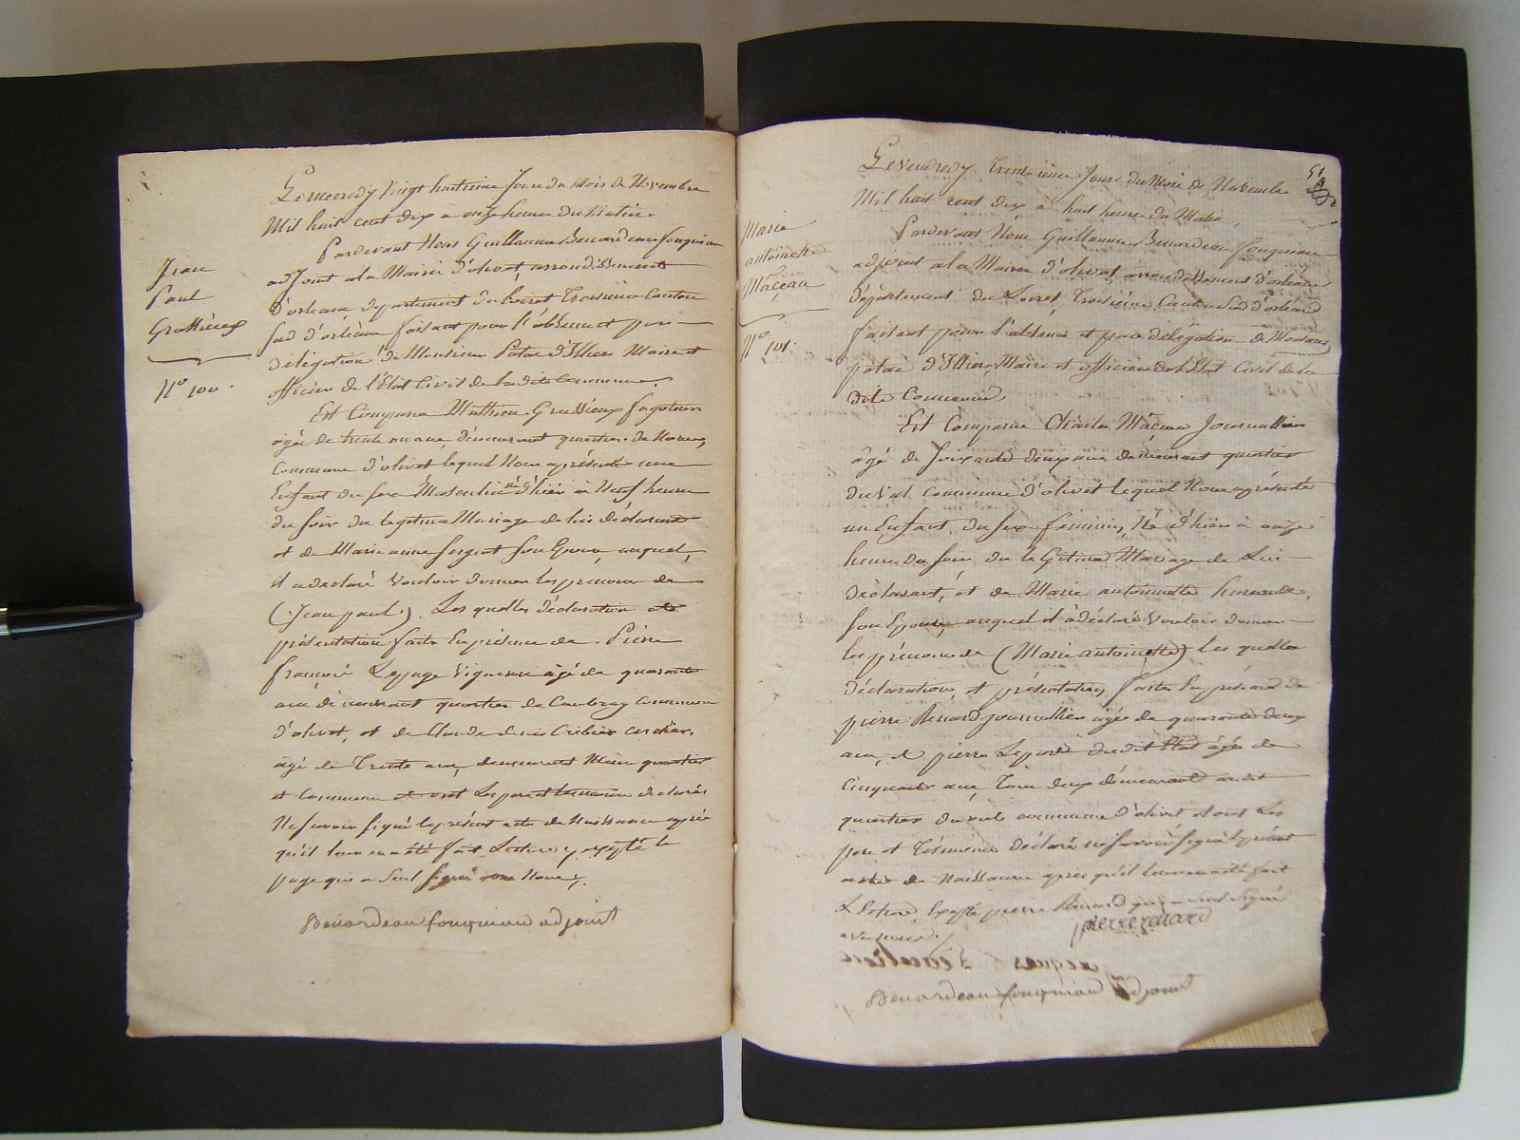 Jean
Paul
Grassieux
N° 100.
Le mercredy vingt huitieme Jour du Mois de Novembre
Mil huit cent dix a onze heures du Matin.
Pardevant Nous Guillaume Benardeau fouqueau
adjoint a la Mairie d'olivet arrondissement
d'orleans departement du Loiret Troisieme Canton
sud d'orléans faisant pour l'absence et par
délégation de Monsieur Patas d'Illiers Maire et
officier de l'État Civil de la dite Commune.
Est Comparu Mathieu Grassieux
agé de trente ans, demeurant quartier de
commune d'olivet lequel Nous a présenté un
Enfant du sexe Masculin né d'hier a Neuf heures
du soir du legitime Mariage de lui déclarant
et de Marie anne Sergent son Epouse auquel
il a declaré vouloir donner les prenoms de
(Jean paul). Les quelles déclaration et
présentation faites En présence de Pierre
françois Lepage Vigneron agé de quarante
ans demeurant quartier de Caubray commune
d'olivet, et de Claude denis
agé de Trente ans, demeurant même quartier
et commune Les pere et temoins déclarés
Ne savoir signé le présent acte de Naissance après
qu'il leur en a été fait Lecture, excepté le
page qui a seul signé avec Nous.
Benardeau fouqueau adjoint
51
Marie
antoinette
Maçeau
N° 101.
Le Vendredy Trentieme Jour du Mois de Novembre
Mil huit cent dix a huit heures du Matin.
Pardevant Nous Guillaume Benardeau fouqueau
adjoint a la Mairie d'olivet, arrondissement d'orléans
Département du Loiret, Troisième Canton Sud d'orléans
faisant pour l'absence et par délégation de Monsieur
patas d'Illiers, Maire et officier de l'État Civil de la
dite Commune.
Est Comparu Charles Maçeau Journallier
âgé de soixante deux ans demeurant quartier
du Val commune d'olivet lequel Nous a présenté
un Enfant du sexe féminin, Né d'hier à onze
heures du soir du Légitime Mariage de Lui
Déclarant, et de Marie antoinette
son Epouse, auquel il à déclaré vouloir donner
les prénoms de (Marie antoinette) Les quelles
déclaration, et présentation faites En présence de
pierre Renard journallier agée de quarante deux
ans, et pierre du dit État âgée de
Cinquante ans, Tous deux demeurant audit
quartier du val commune d'olivet dont Les
pere et Témoins Déclaré ne savoir signé le présent
acte de Naissance après qu'il leur en a été fait
Lecture, Excepté pierre Renard qui a signé
avec nous.
pierre renard
Benardeau fouqueau adjoint